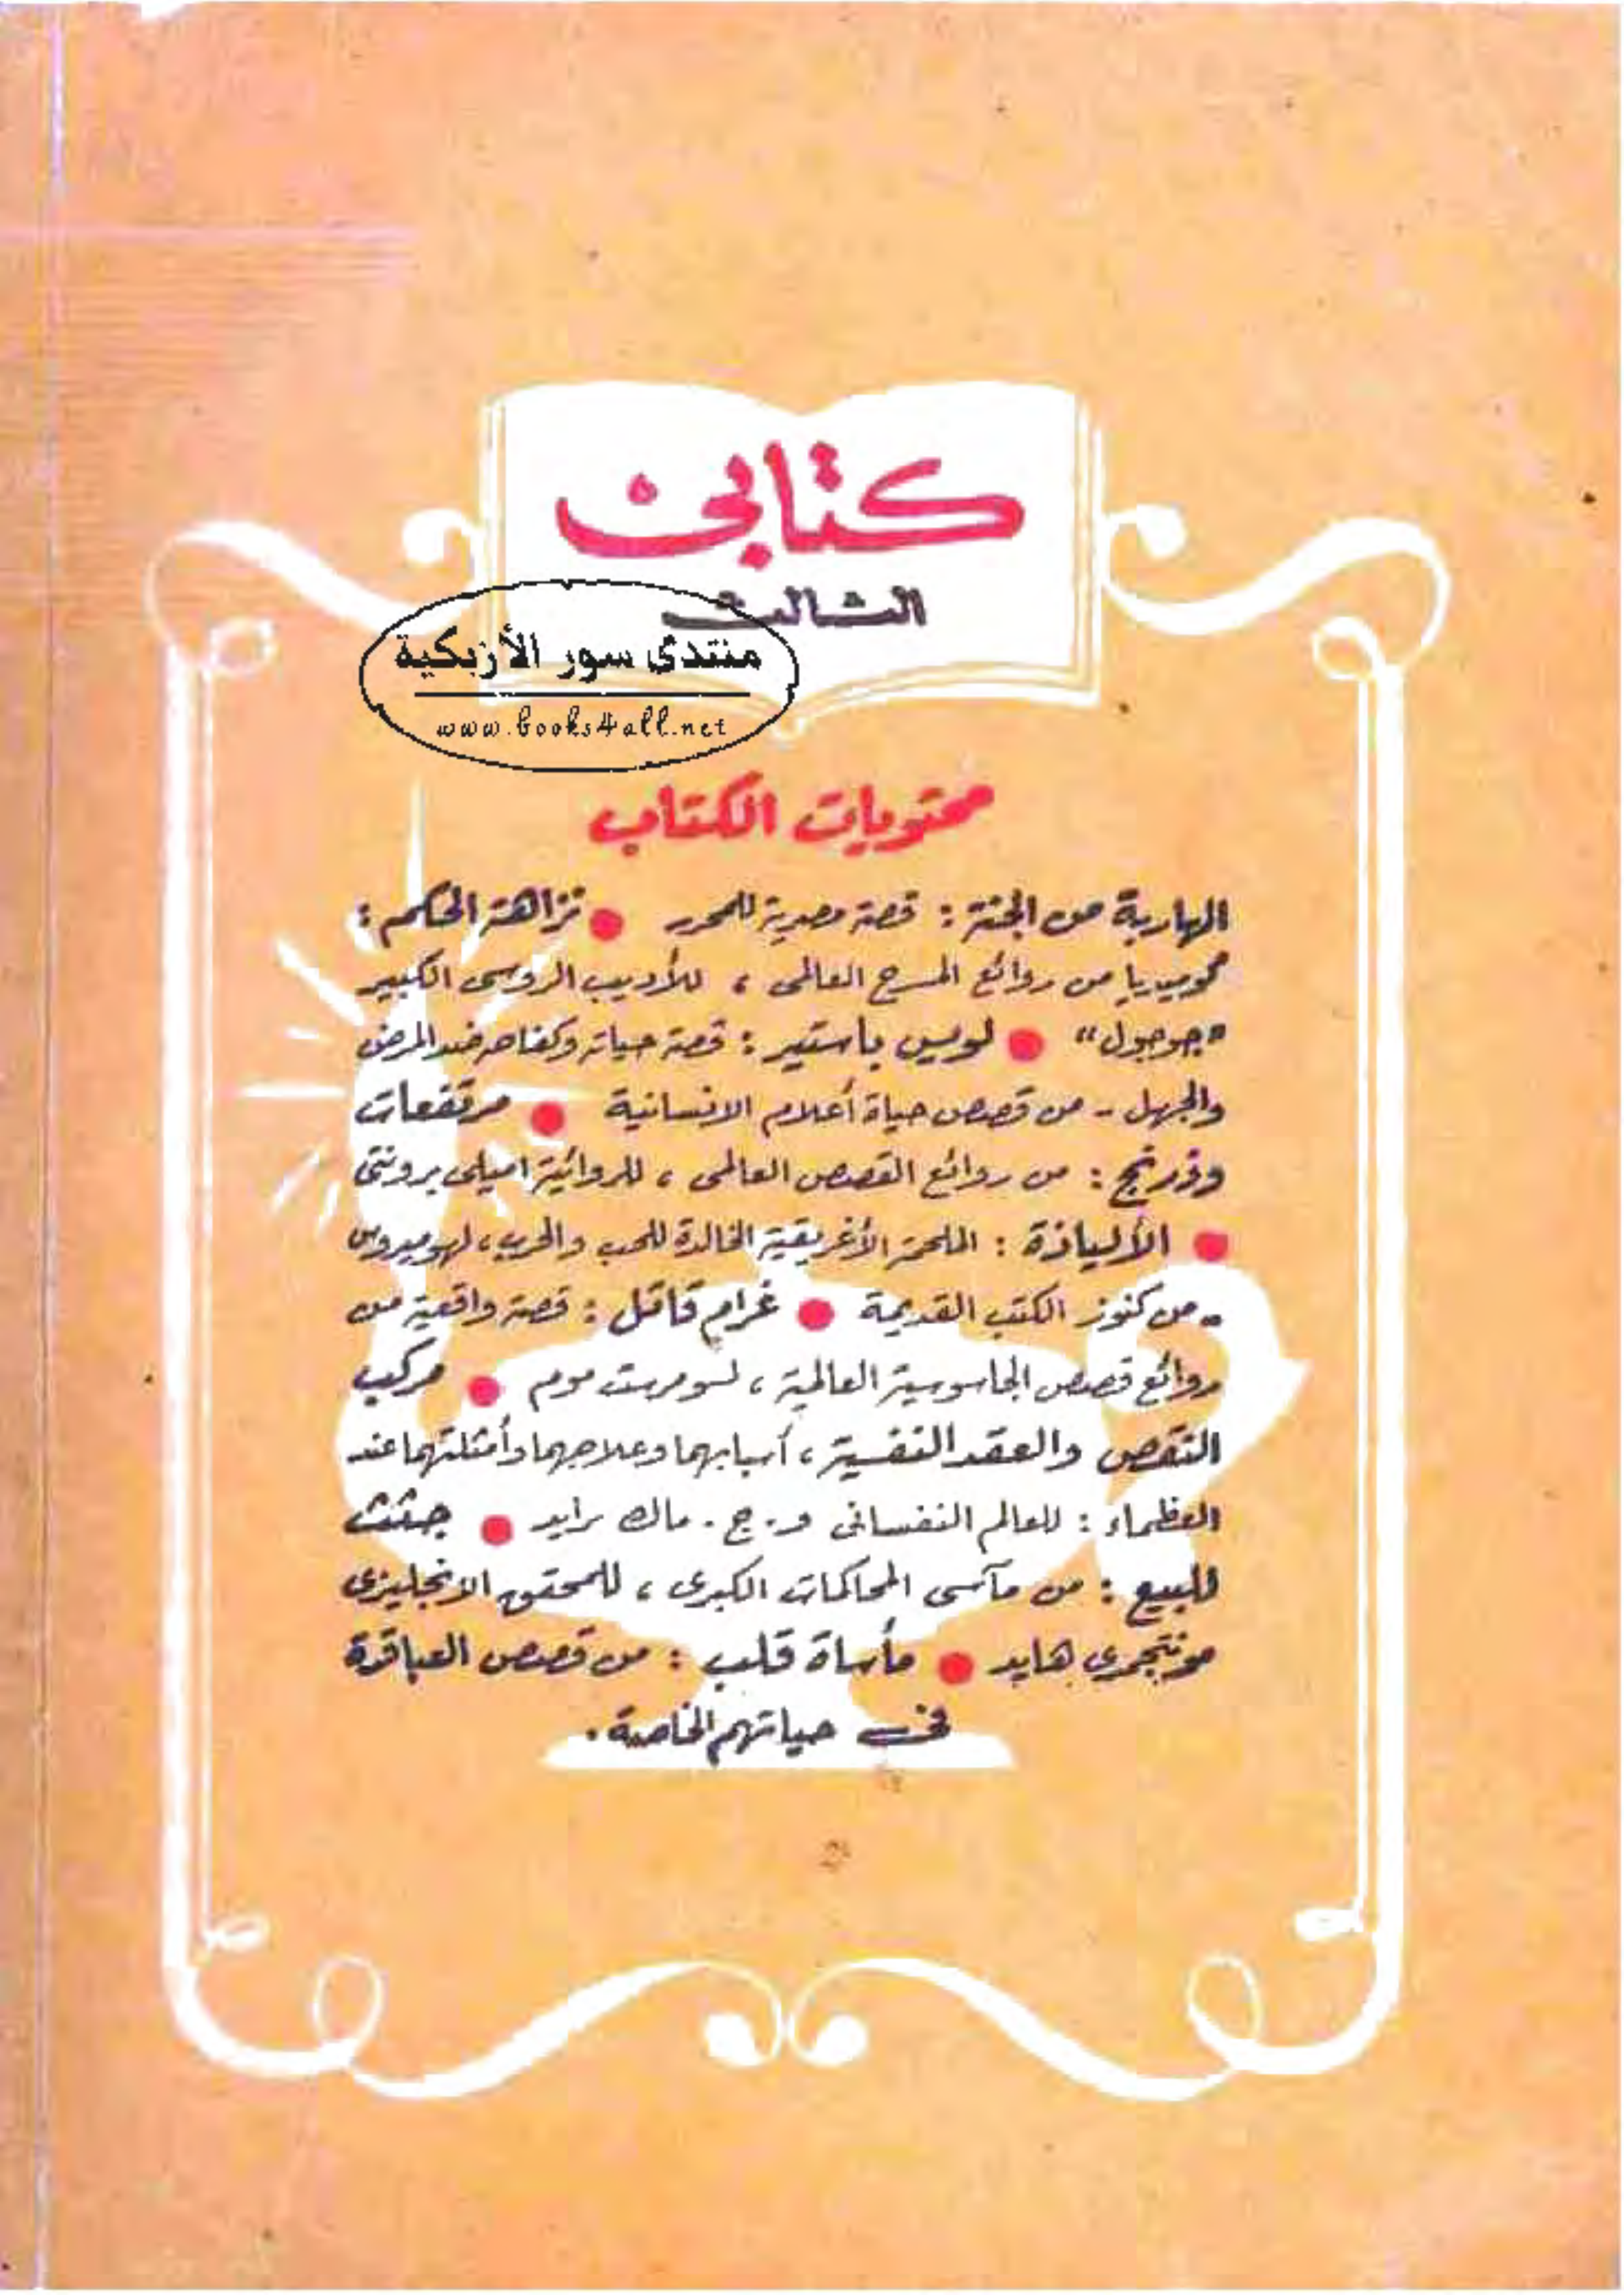 كتابى
الثالث
منتدى سور الأزبكية
www.books4all.net
محتويات الكتاب
الهاربة من الجنة : قصة مصرية للمحرر ● نزاهة الحكم :
كوميديا من روائع المسرح العالمى ، للأديب الروسى الكبير
"جوجول" ● لويس باستير : قصة حياته وكفاحه ضد المرض
والجهل - من قصص حياة أعلام الانسانية ● مرتفعات
وذرنج : من روائع القصص العالمى ، للروائية اميلى برونتى
● الألياذة : الملحمة الأغريقية الخالدة للحب والحرب ، لهوميروس
- من كنوز الكتب القديمة ● غرام قاتل : قصة واقعية من
روائع قصص الجاسوسية العالمية ، لسومرست موم ● مركب
النقص والعقد النفسية ، أسبابهما وعلاجهما وأمثلتهما عند
العظماء : للعالم النفسانى و . ج . ماك برايد ● جثث
للبيع : من مآسى المحاكمات الكبرى ، للمحقق الانجليزى
مونتجمرى هايد ● مأساة قلب : من قصص العباقرة
فى حياتهم الخاصة .